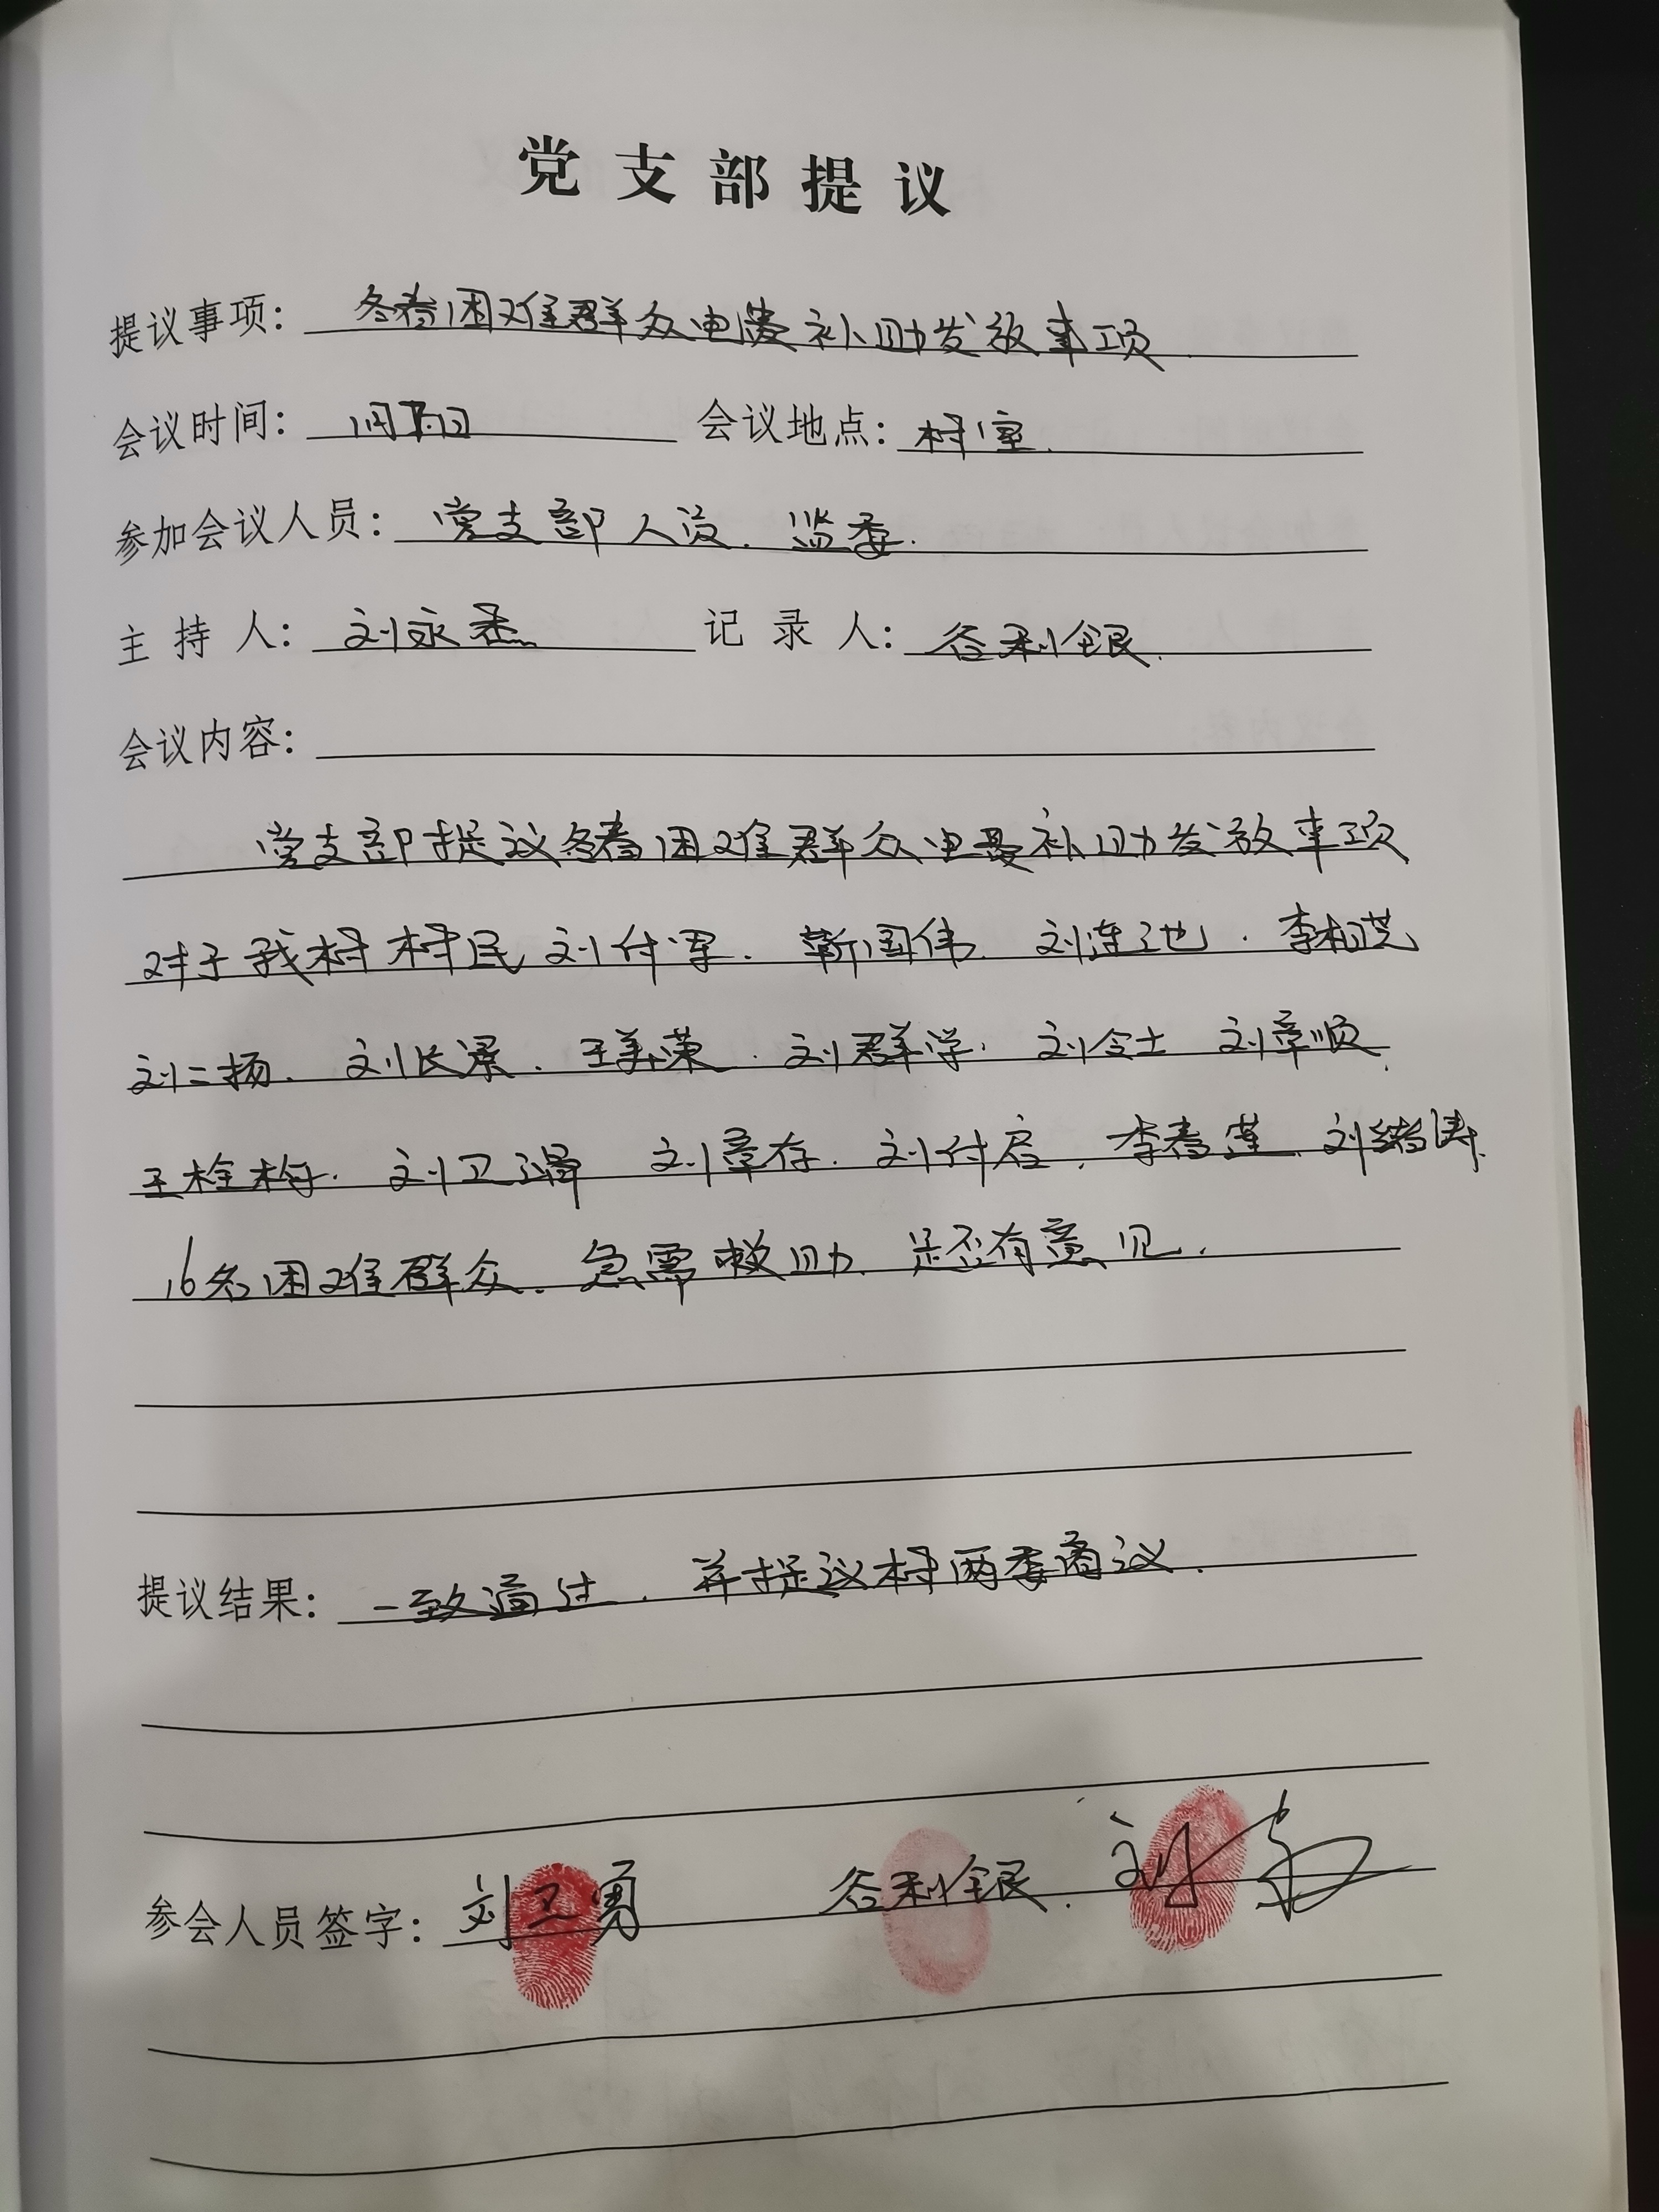 党支部提议
提议事项： 冬春困难群众电费补助发放事项
会议时间： 会议地点： 村室.
参加会议人员： 党支部人员. 监委.
主持人： 刘永杰 记录人： 谷利银.
会议内容：
党支部提议冬春困难群众电费补助发放事项
对于我村村民刘付军. 靳国伟. 刘连池. 李相芝
刘二扬. 刘长梁. 王美荣. 刘群学. 刘令士 刘章顺.
王栓梅. 刘卫 刘章存. 刘付启. 李春莲. 刘绪涛.
16名困难群众. 急需救助. 是否有意见.
提议结果： 一致通过. 并提议村两委商议.
参会人员签字： 刘卫勇 谷利银. 刘